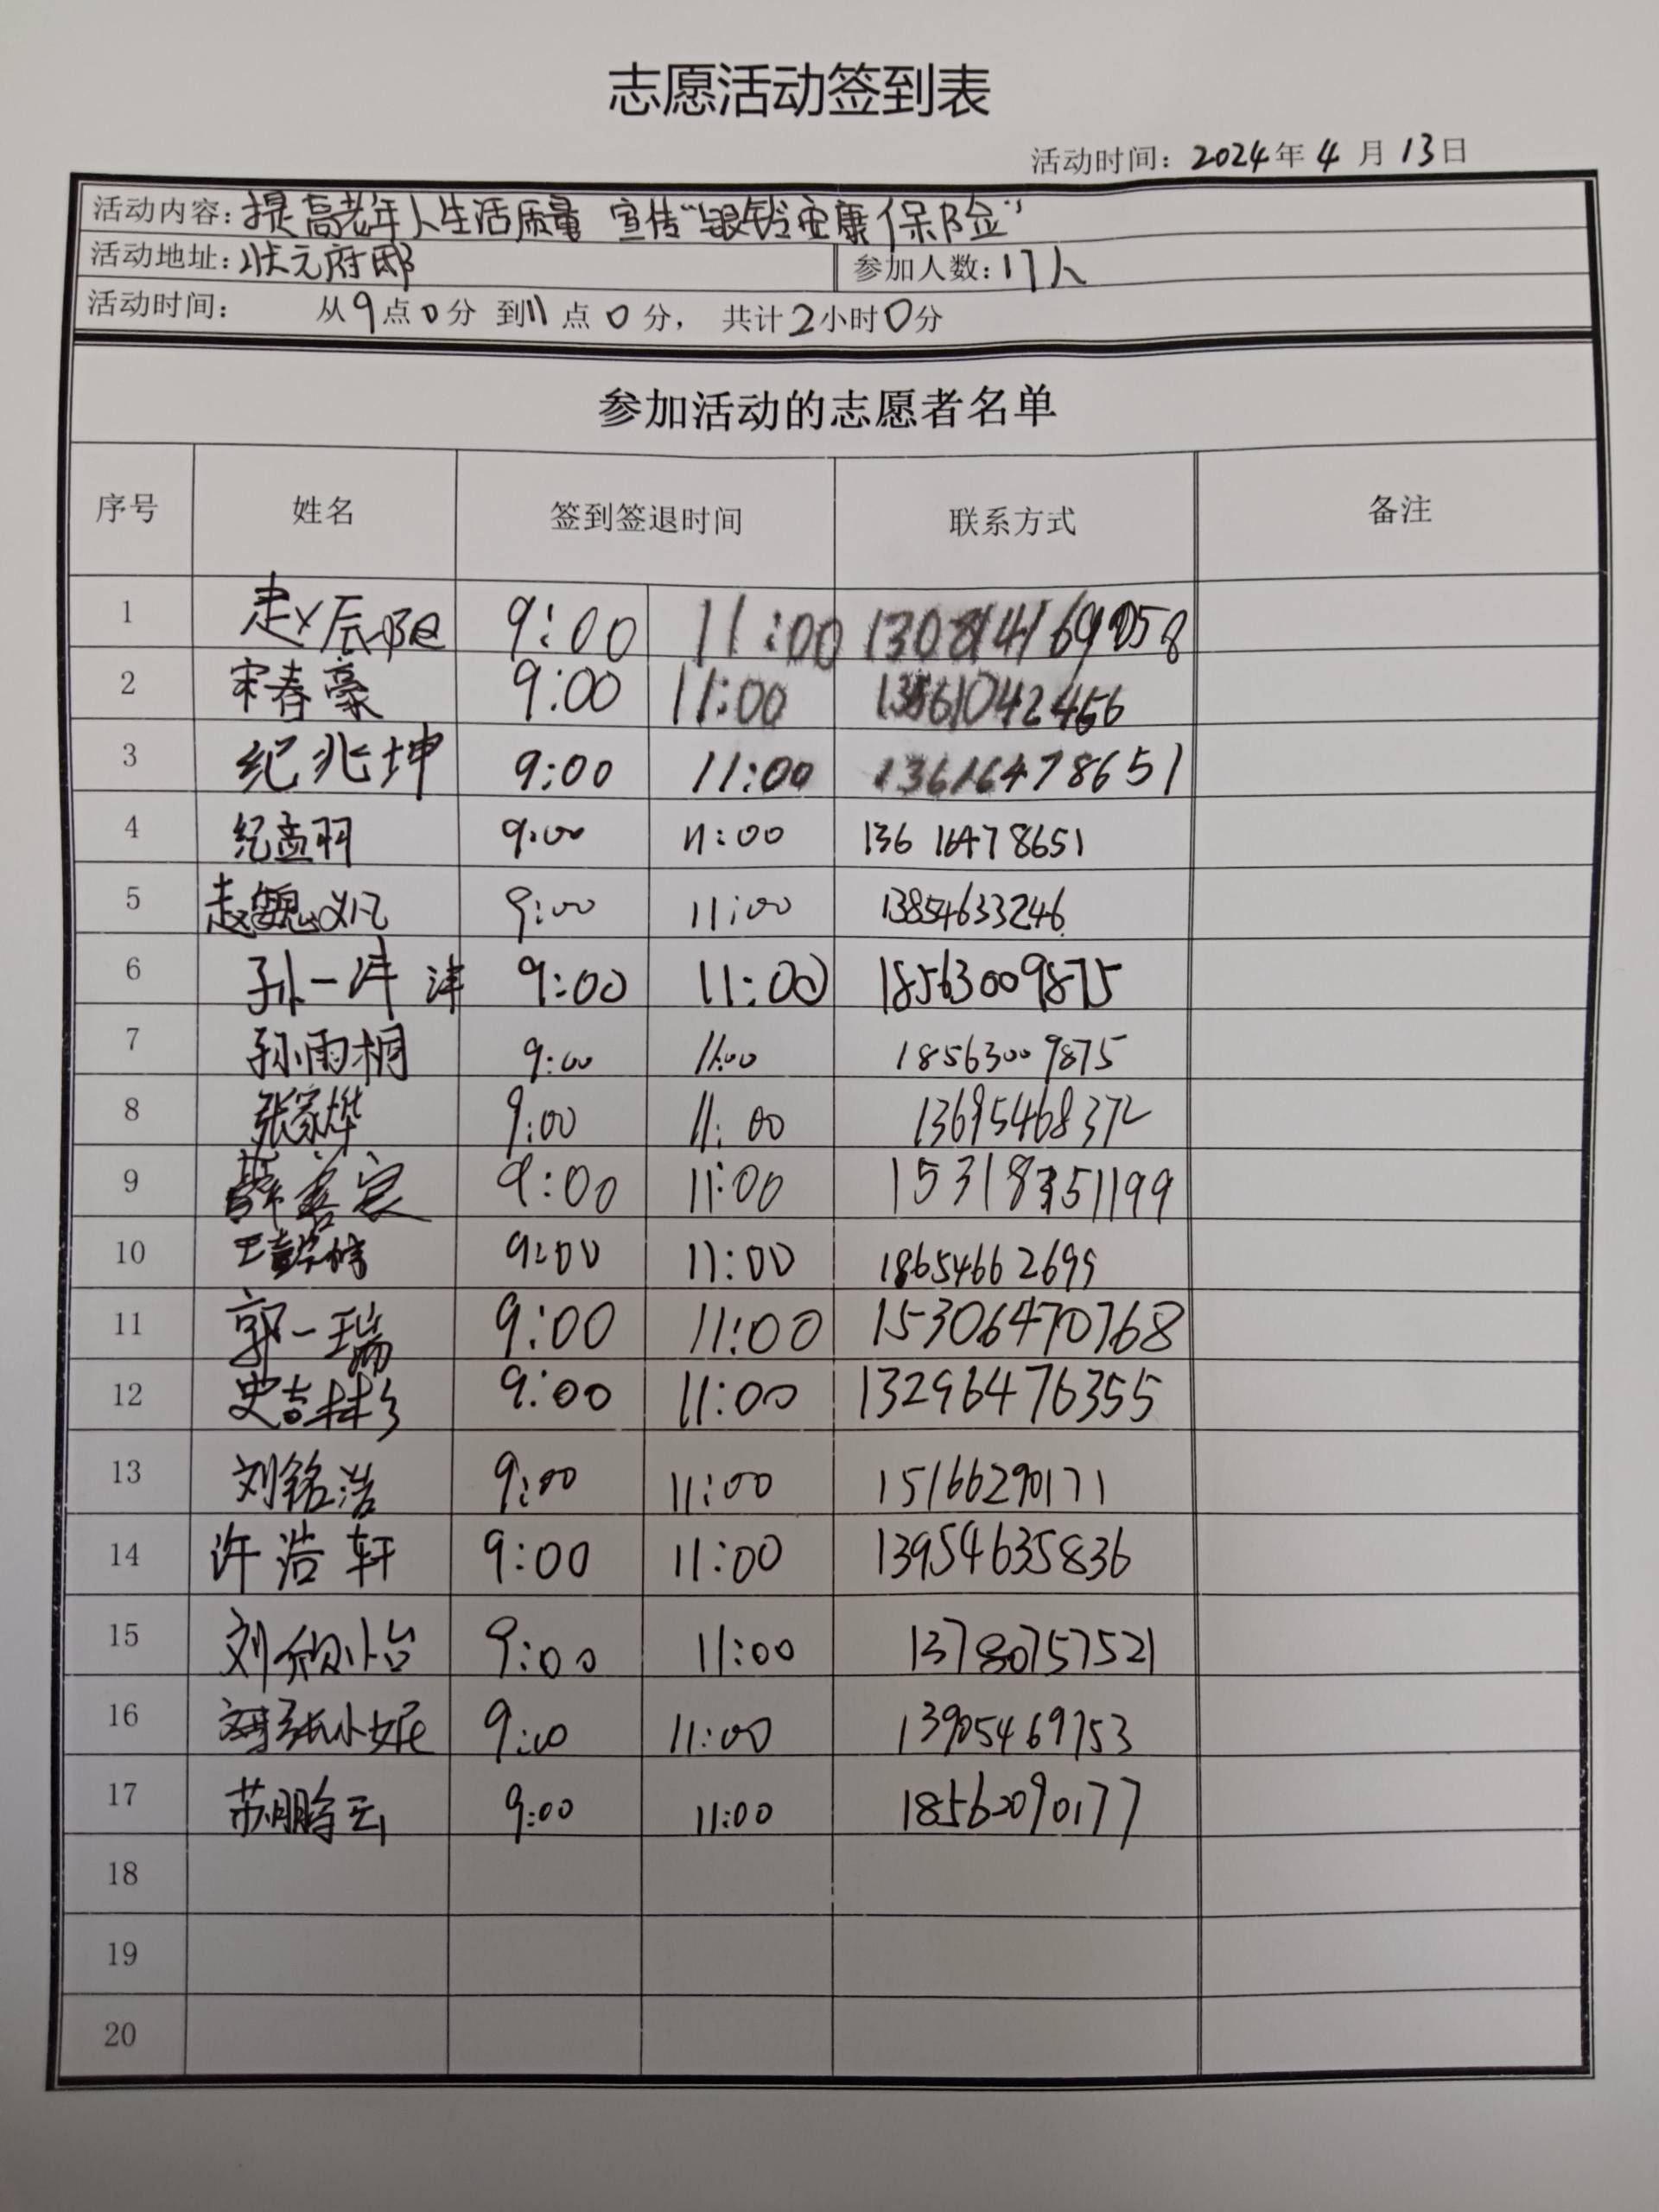 志愿活动签到表
活动时间：2024年4月13日
活动内容：提高老年人生活质量 宣传“银铃安康保险”
活动地址：状元府邸 参加人数：17人
活动时间： 从9点0分 到11点0分， 共计2小时0分
参加活动的志愿者名单
序号 姓名 签到签退时间 联系方式 备注
1 赵辰阳 9:00 11:00
2 宋春豪 9:00 11:00
3 纪兆坤 9:00 11:00 13616478651
4 纪孟羽 9:00 11:00 13616478651
5 赵魏 9:00 11:00 13854633246
6 孙一洋 洋 9:00 11:00 18563009875
7 孙雨桐 9:00 11:00 18563009875
8 张家烨 9:00 11:00 13695468372
9 薛 9:00 11:00
10 王 9:00 11:00 18654662699
11 郭一瑞 9:00 11:00 15306470768
12 史吉 9:00 11:00 13296476355
13 刘铭浩 9:00 11:00 15166290171
14 许浩轩 9:00 11:00 13954635836
15 刘欣怡 9:00 11:00 13780757521
16 9:00 11:00 13905469753
17 苏鹏云 9:00 11:00 18562090177
18
19
20